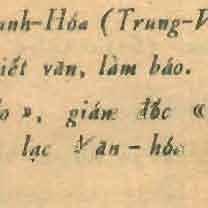 anh-Hóa (Trung-V
iết văn, làm báo.
o », giám đốc «
lạc Văn-hóa